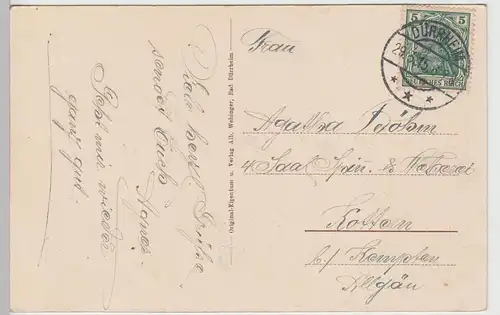 Viele herzl. Grüße
sendet Euch
Agnes.
Geht mir wieder
ganz gut.
Original-Eigentum u. Verlag Alb. Wehinger, Bad Dürrheim
5 5
DÜRRHEIM
DEUTSCHES REICH
Frau
Agatha Böhm
4 Saal Spin. & Weberei
Kottern
b/ Kempten
Allgäu